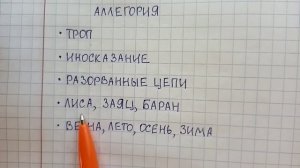 АЛЛЕГОРИЯ
• ТРОП
• ИНОСКАЗАНИЕ
• РАЗОРВАННЫЕ ЦЕПИ
• ЛИСА, ЗАЯЦ, БАРАН
• ВЕСНА, ЛЕТО, ОСЕНЬ, ЗИМА